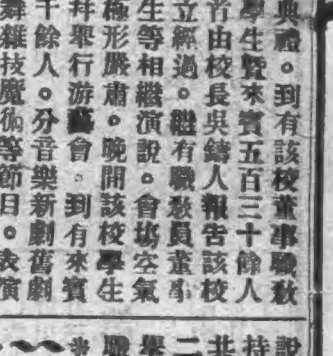 典禮。到有該校董事職教
學生暨來賓五百三十餘人
首由校長吳鑄人報告該校
立經過。繼有職教員董事
生等相繼演說。會塲空氣
極形嚴肅。晚開該校學生
幷舉行游藝會。到有來賓
千餘人。分音樂新劇舊劇
舞雜技魔術等節目。表演
說
持
北
二
學
職